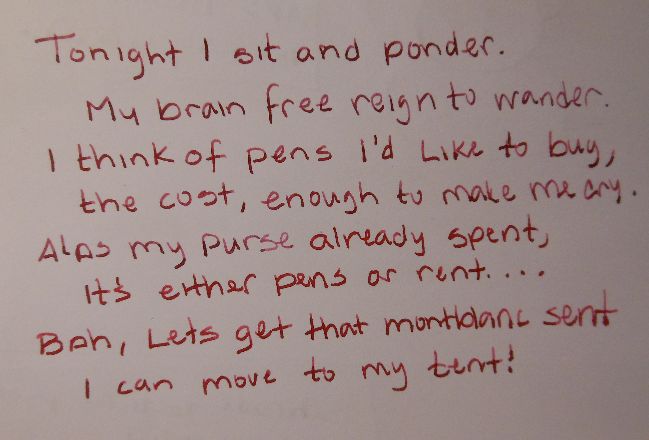 Tonight I sit and ponder.
My brain free reign to wander.
I think of pens I'd Like to buy,
the cost, enough to make me cry.
Alas my purse already spent,
It's either pens or rent....
Bah, Lets get that montblanc sent
I can move to my tent!